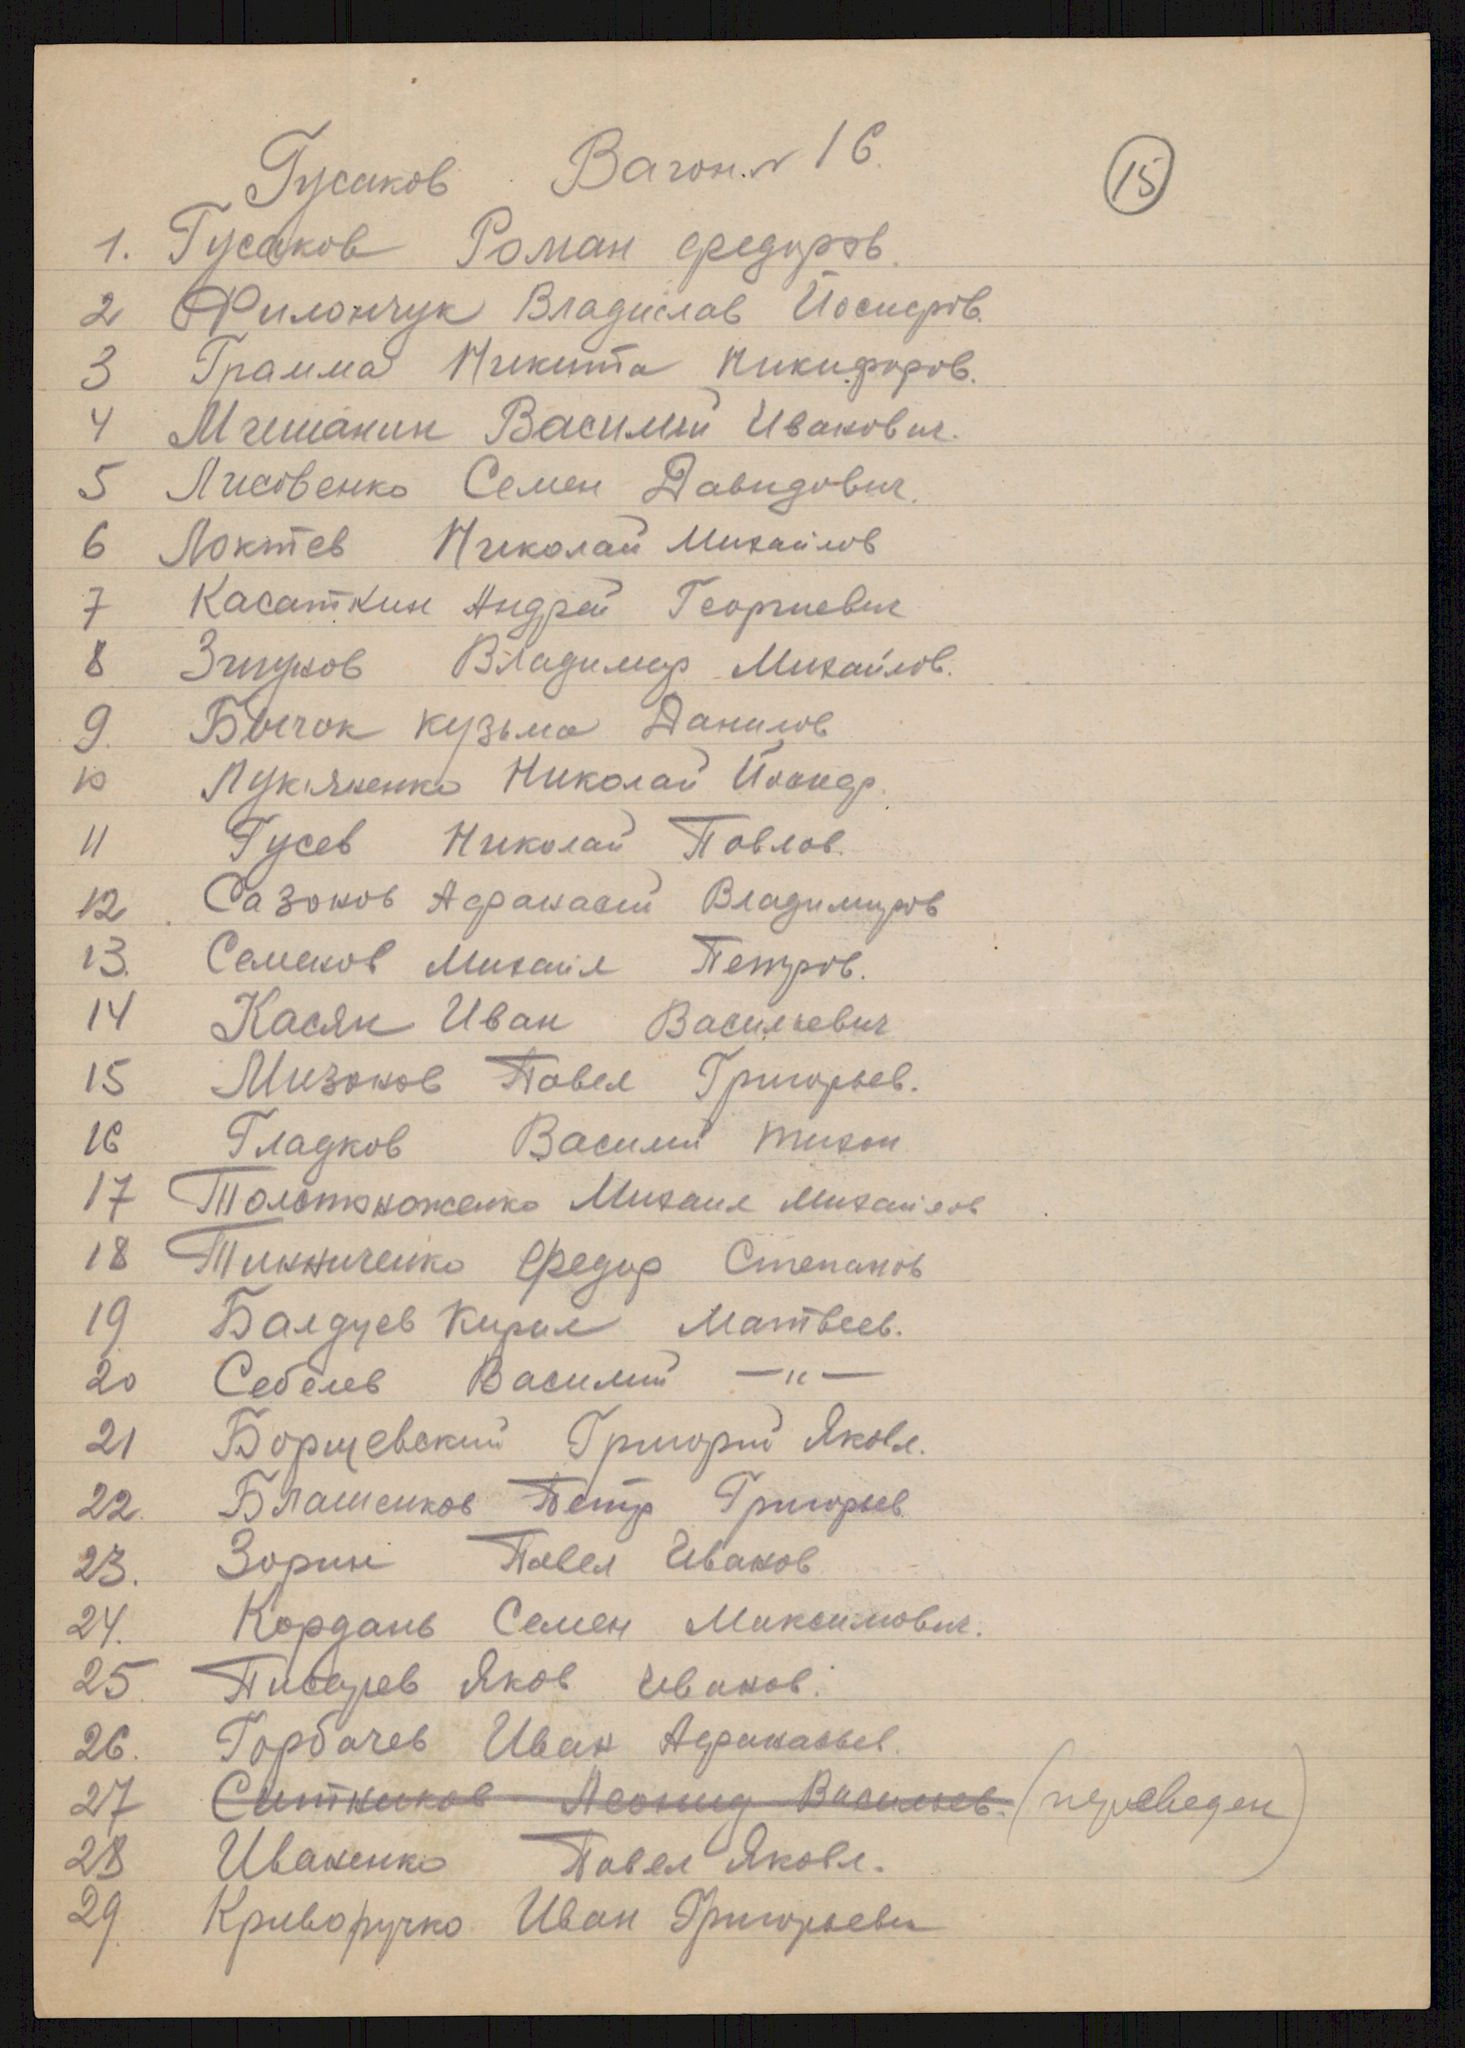 Гусаков Вагон. № 16.
15
1. Гусаков Роман Федоров.
2 Филончук Владислав Йосифов.
3 Грамма Никита Никифоров.
4 Мчешанин Василий Иванович.
5 Лисовенко Семен Давидович.
6 Локтев Николай Михайлов
7 Касаткин Андрей Георгиевич
8 Владимир Михайлов.
9. Бычок Кузьма Данилов
10 Лукяненко Николай Йосиф.
11 Гусев Николай Павлов.
12 Сазонов Афанасий Владимиров
13. Семенов Михаил Петров.
14 Касян Иван Васильевич
15 Мизонов Павел Григорьев.
16 Гладков Василий Тихон
17 Толстоноженко Михаил Михайлов
18 Тинниченко Федор Степанов
19 Балдуев Кирил Матвеев.
20 Себелев Василий —"—
21 Борщевский Григорий Яковл.
22. Блашенков Петр Григорьев
23. Зорин Павел Иванов
24. Кордань Семен Максимович.
25. Писарев Яков Иванов.
26. Горбачев Иван Афанасьев.
27 Ситников Леонид Васильев. (переведен)
28 Иваненко Павел Яковл.
29. Криворучко Иван Григорьевич